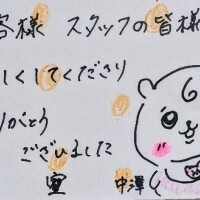 客様 スタッフの皆様
しくしてくださり
りがとう
ございました
中澤